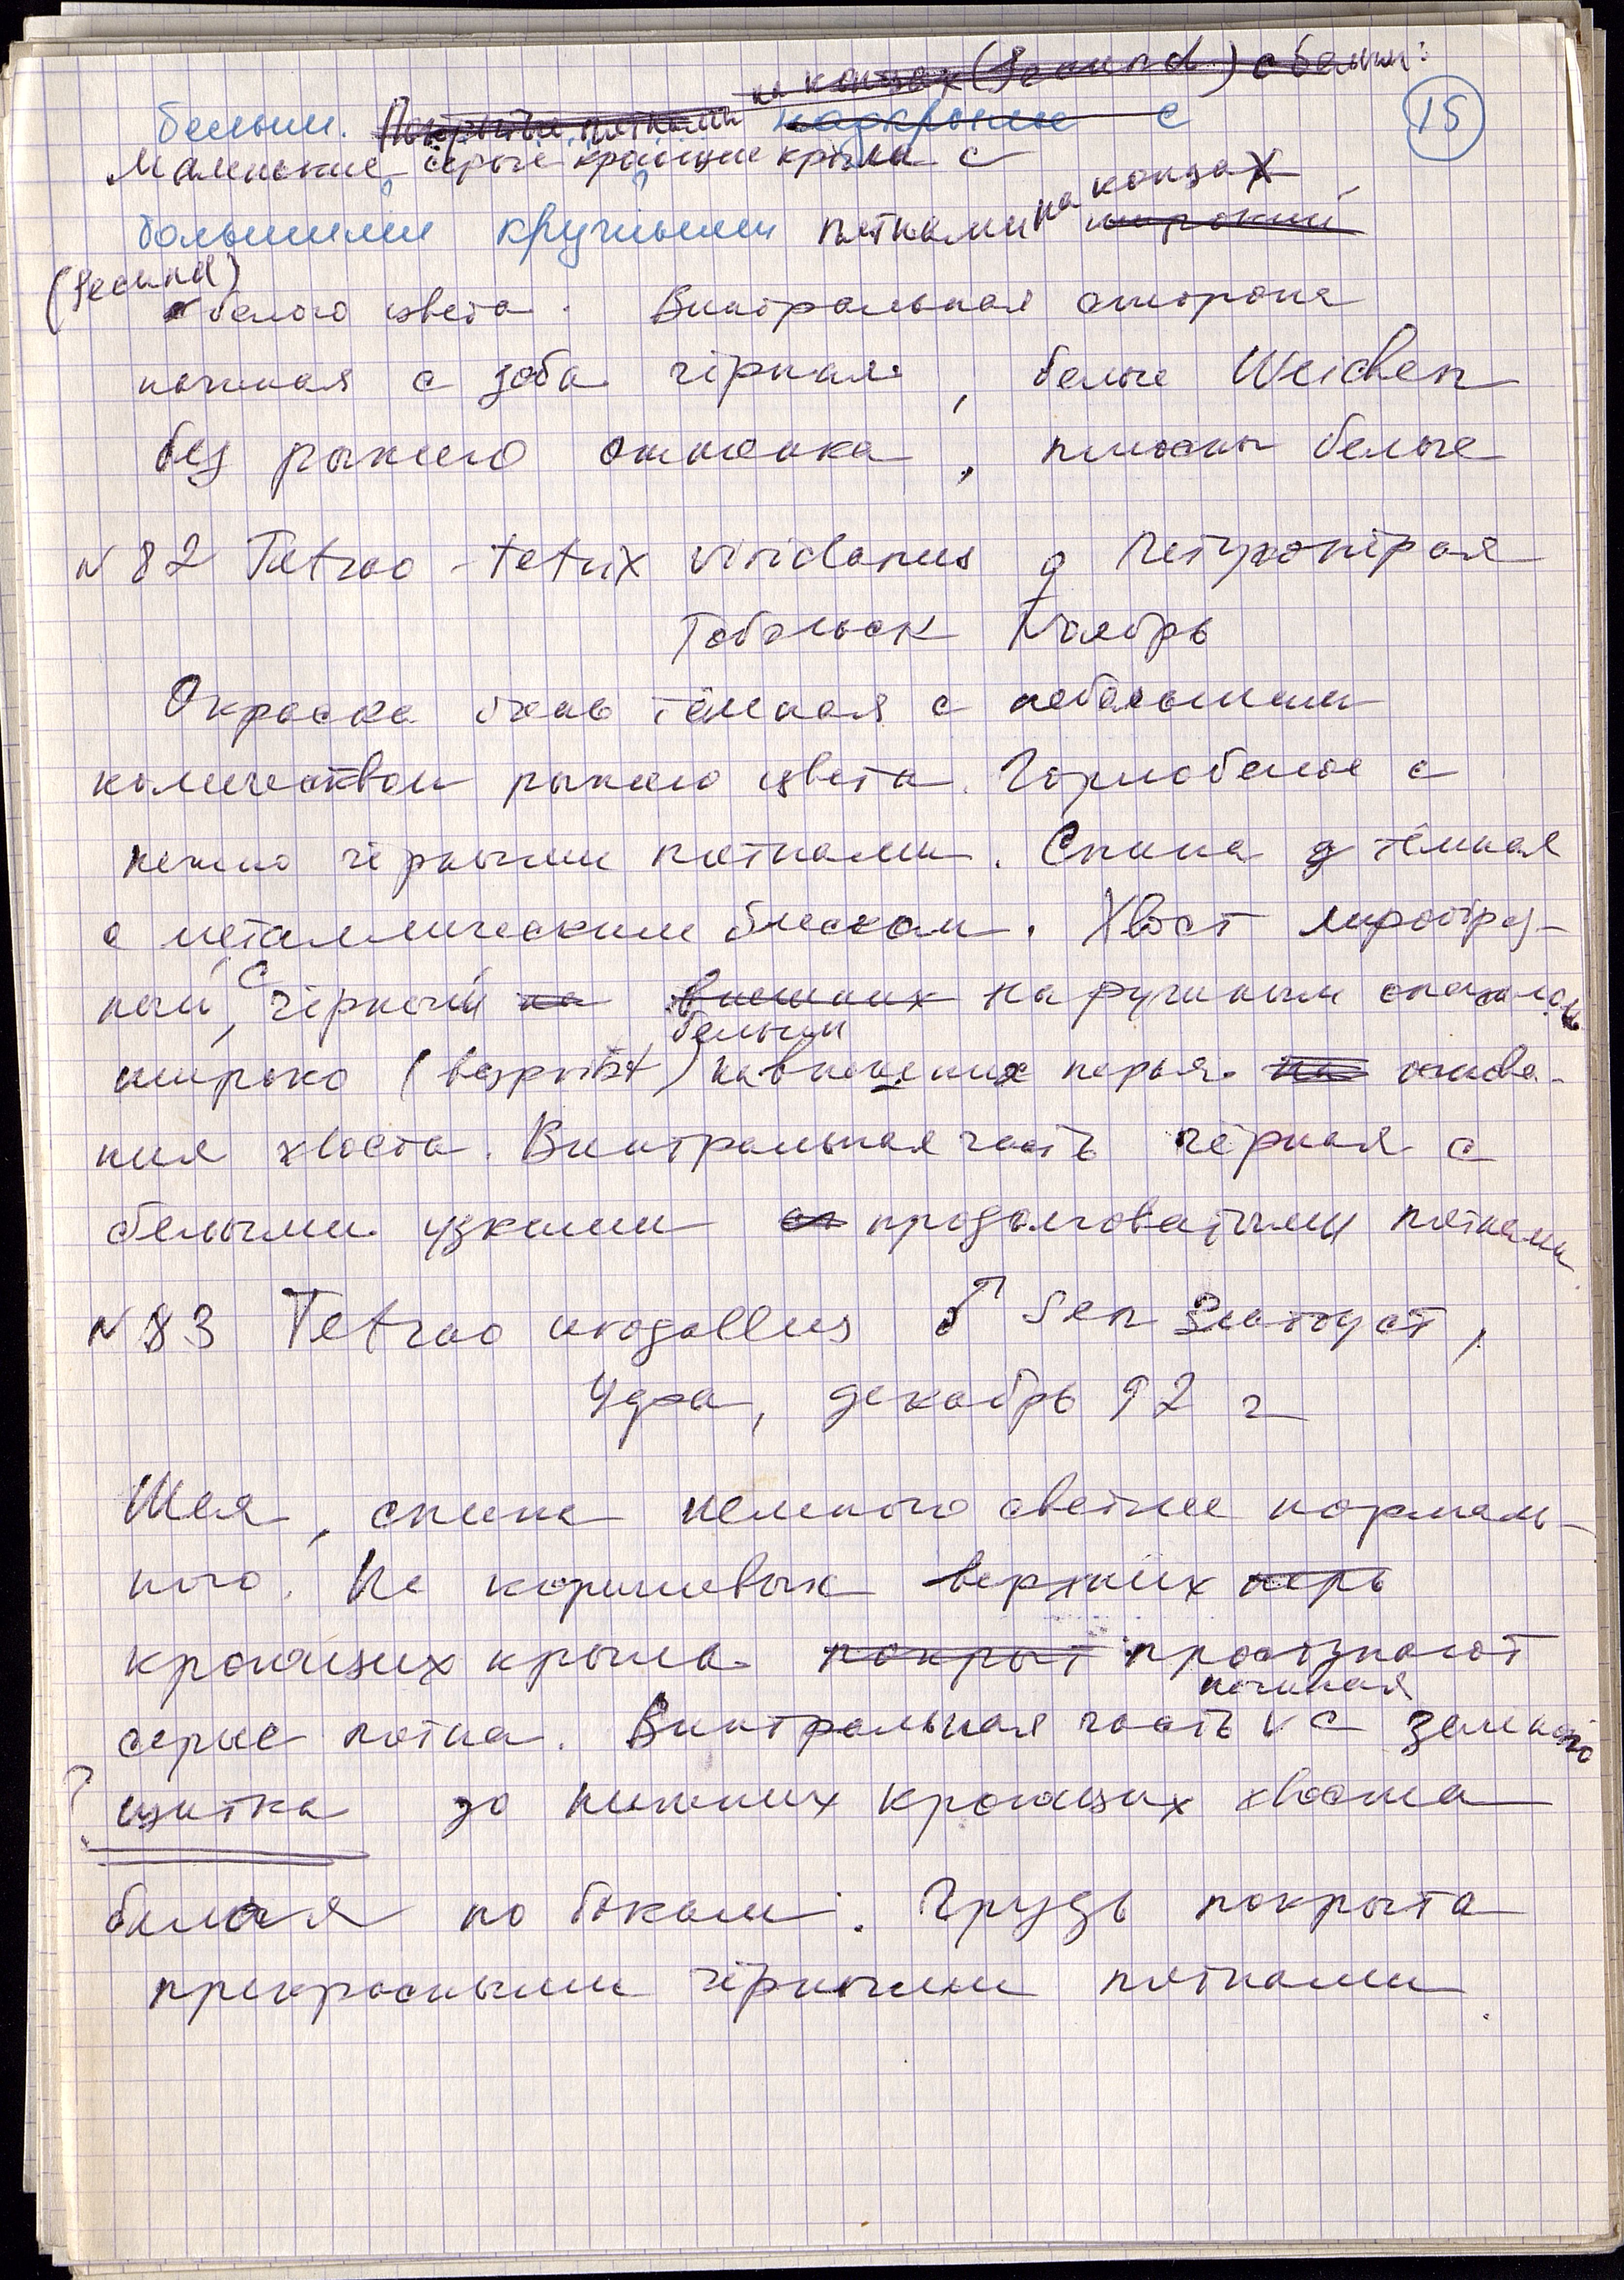 на концах (Secund) с белым
15
белыми. Покрытые пятнами надкрылья с
Маленькие серые кроющие крыла с
большими круглыми пятнами на концах широкий
(Secund)
белого цвета. Вентральная сторона
начиная с зоба чёрная, белые Weichen
без рыжего оттенка, плюсны белые
N 82 Tetrao-tetrix viridanus ♀ Петухопёрая
Тобольск Ноябрь
Окраска очень тёмная с небольшим
количеством рыжего цвета. Горло белое с
нежно чёрными пятнами. Спина тёмная
с металлическим блеском. Хвост лирообраз-
ный, чёрный с на внешних наружным
белым
широко (bespritzt) на внешних перьях на основа-
ния хвоста. Вентральная часть чёрная с
белыми узкими продолговатыми пятнами.
N 83 Tetrao urogallus ♂ Sen Златоуст,
Уфа, декабрь 92 г
Шея, спина немного светлее нормаль-
ного. На коричневых верхних перь
кроющих крыла покрыт проступают
начиная
серые пятна. Вентральная часть V с зеленого
? щитка до нижних кроющих хвоста
белая по бокам. Грудь покрыта
прекрасными чёрными пятнами.